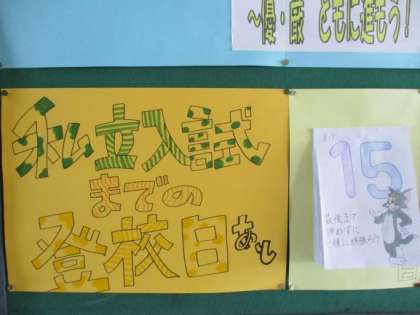 ～優・厳 ともに進もう！
私立入試
までの
登校日
あと
15
最後まで
諦めずに
一緒に頑張ろう